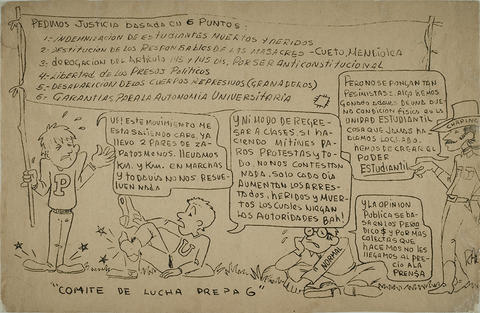 PEDIMOS JUSTICIA BASADA EN 6 PUNTOS:
1-INDEMNIZACION DE ESTUDIANTES MUERTOS Y HERIDOS
2-DESTITUCION DE LOS RESPONSABLES DE LAS MASACRES-CUETO, MENDIOLEA
3-DEROGACION DEL ARTICULO 145 Y 145 BIS, POR SER ANTICONSTITUCIONAL
4-LIBERTAD DE LOS PRESOS POLITICOS
5-DESAPARICION DE LOS CUERPOS REPRESIVOS (GRANADEROS)
6-GARANTIAS PARA LA AUTONOMIA UNIVERSITARIA
UF! ESTE MOVIMIENTO ME
ESTA SALIENDO CARO YA
LLEVO 2 PARES DE ZA-
PATOS MENOS. LLEVAMOS
KM. Y KM. EN MARCHAS
Y TODAVIA NO NOS RESUEL-
VEN NADA
Y NI MODO DE REGRE-
SAR A CLASES. SI HA-
CIENDO MITINES PAROS
PROTESTAS Y TO-
DO, NO NOS CONTESTAN
NADA. SOLO CADA DIA
AUMENTAN LOS ARRES-
TADOS, HERIDOS Y MUER-
TOS LOS CUALES NIEGAN
LAS AUTORIDADES BAH!
PERO NO SE PONGAN TAN
PESIMISTAS! ALGO HEMOS
GANADO
UNIDAD ESTUDIANTIL
COSA QUE JAMAS HA-
BIAMOS LOGRADO.
HEMOS DE CREAR EL
PODER
ESTUDIANTIL
Y LA OPINION
PUBLICA SE BA-
SA EN LOS PERIO
DICOS Y POR MAS
COLECTAS QUE
HACEMOS NO LES
LLEGAMOS AL PRE-
CIO A LA
PRENSA
P
U
NORMAL
CHAPINGO
"COMITE DE LUCHA PREPA 6"